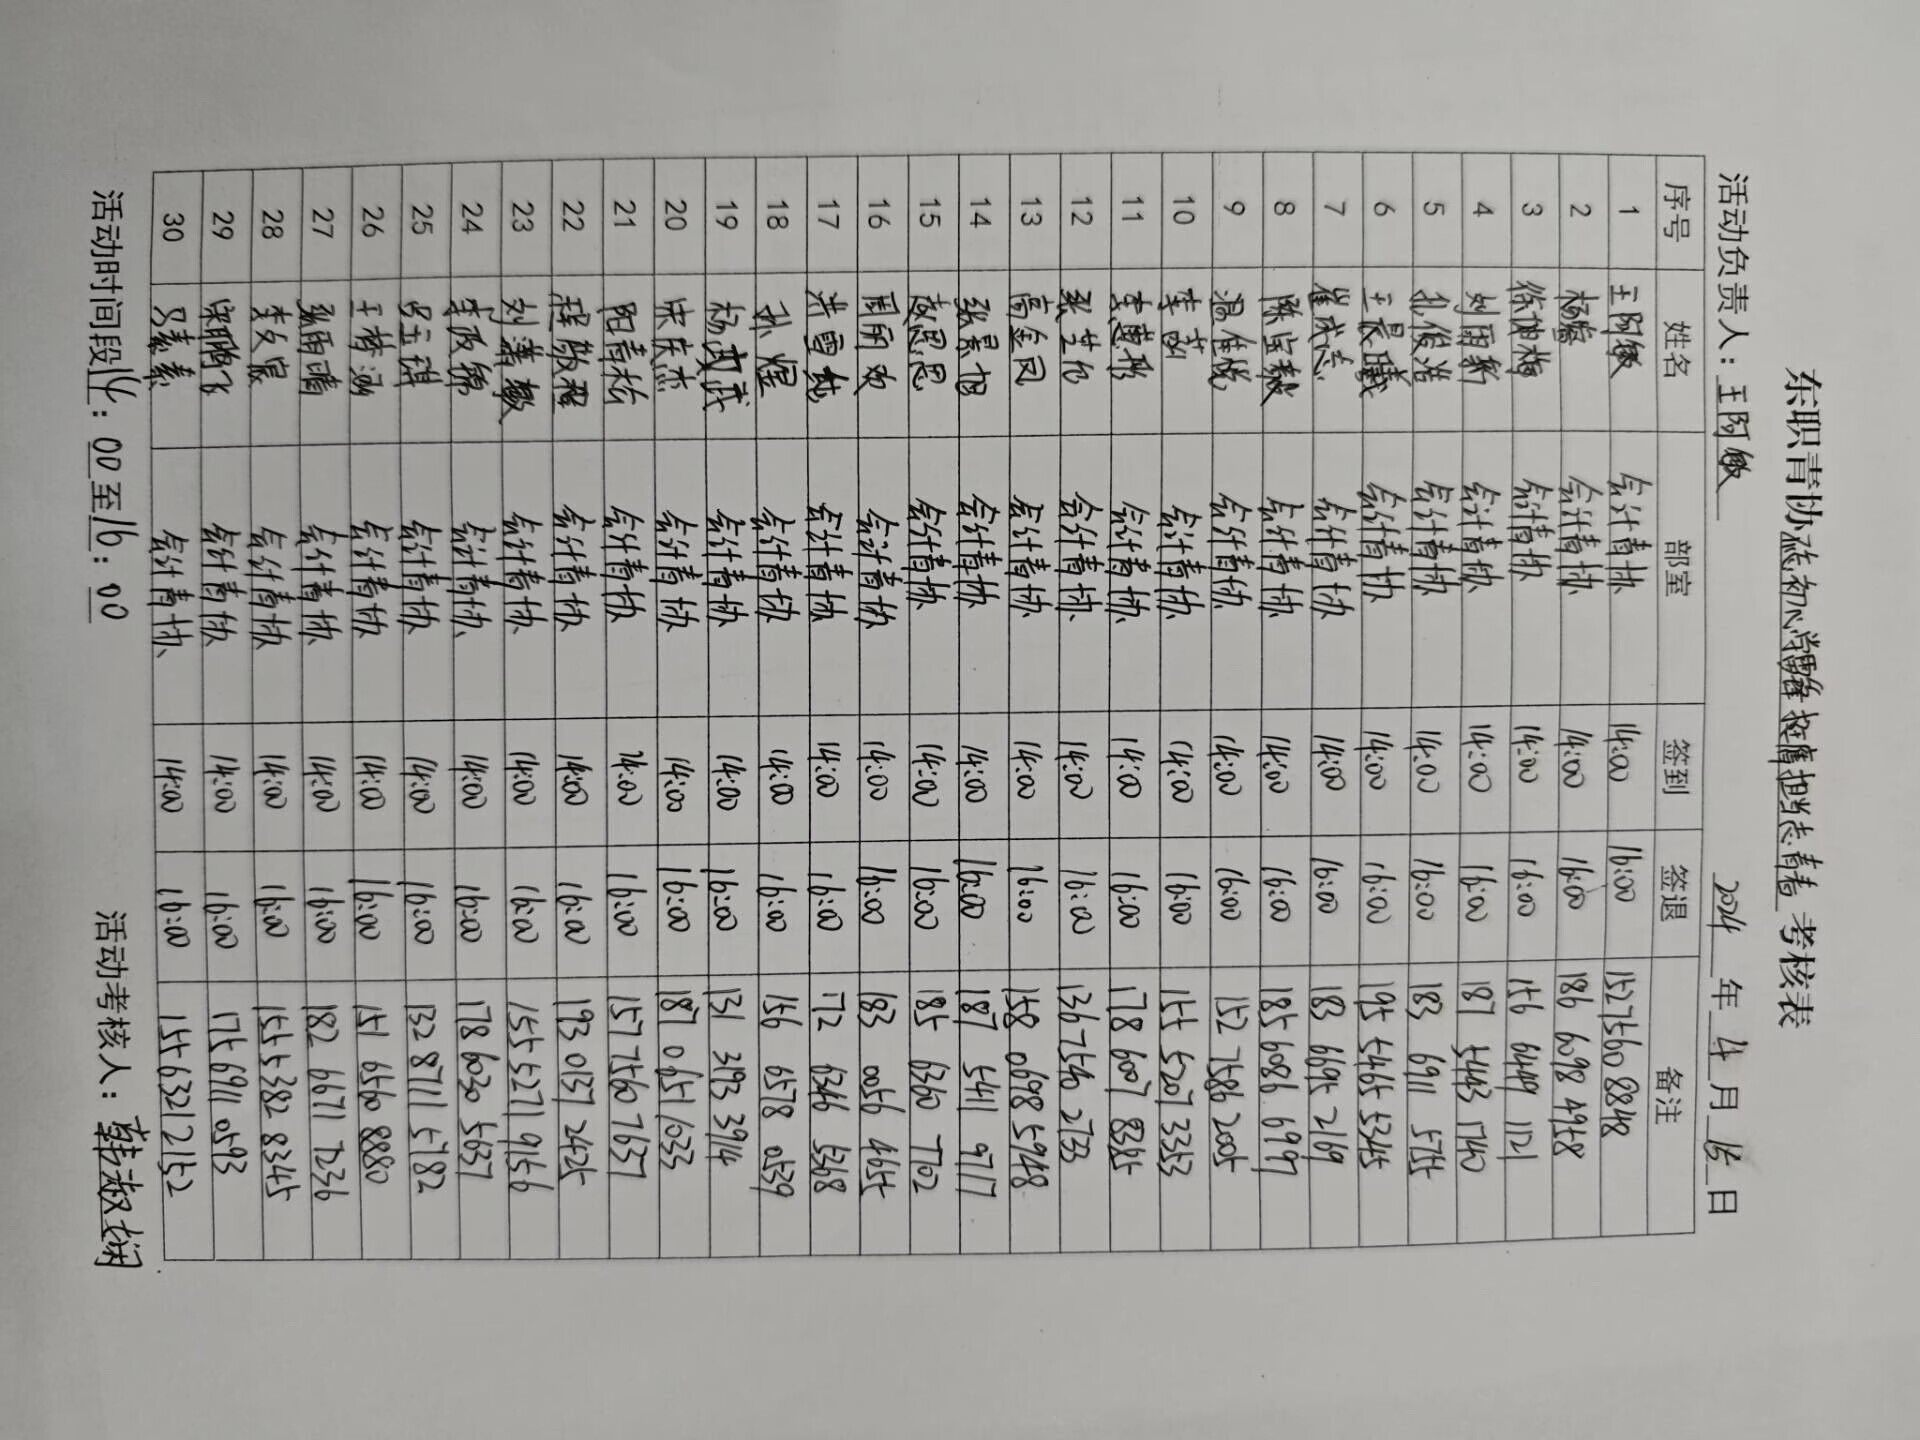 东职青协忆初心学雷锋 担当志青春 考核表
活动负责人：王阿敏 2024 年 4 月 15 日
序号 姓名 部室 签到 签退 备注
1 王阿敏 会计青协 14:00 16:00 152 7560 8848
2 杨睿 会计青协 14:00 16:00 186 6098 4958
3 徐迪梅 会计青协 14:00 16:00 156 6449 1121
4 刘雨新 会计青协 14:00 16:00 187 5443 1740
5 孔俊浩 会计青协 14:00 16:00 183 6911 5755
6 王晨曦 会计青协 14:00 16:00 195 5465 5345
7 崔成志 会计青协 14:00 16:00 183 6695 2169
8 陈宝毅 会计青协 14:00 16:00 185 6086 6997
9 温佳悦 会计青协 14:00 16:00 152 7586 2005
10 李茵 会计青协 14:00 16:00 155 5207 3353
11 李慧彤 会计青协 14:00 16:00 178 6007 8385
12 张芷允 会计青协 14:00 16:00 136 7540 2733
13 高金凤 会计青协 14:00 16:00 158 0698 5948
14 张景旭 会计青协 14:00 16:00 187 5411 9717
15 赵思思 会计青协 14:00 16:00 185 6360 7702
16 周雨欢 会计青协 14:00 16:00 183 0056 4655
17 洪雪 会计青协 14:00 16:00 172 6346 5368
18 孙煜 会计青协 14:00 16:00 156 6578 0539
19 杨成武 会计青协 14:00 16:00 131 3193 3914
20 宋庆杰 会计青协 14:00 16:00 187 0651 1033
21 阳青松 会计青协 14:00 16:00 157 7560 7637
22 程敬程 会计青协 14:00 16:00 193 0137 2425
23 刘潇 会计青协 14:00 16:00 155 5271 9156
24 李政锦 会计青协 14:00 16:00 178 6030 5637
25 吕玉琪 会计青协 14:00 16:00 132 8711 5782
26 王梓涵 会计青协 14:00 16:00 151 6560 8880
27 张雨晴 会计青协 14:00 16:00 182 6671 7236
28 李文宸 会计青协 14:00 16:00 155 5382 8345
29 梁鹏飞 会计青协 14:00 16:00 175 6911 0593
30 吕素素 会计青协 14:00 16:00 155 6321 2152
活动时间段14：00至16：00 活动考核人：韩淑娴